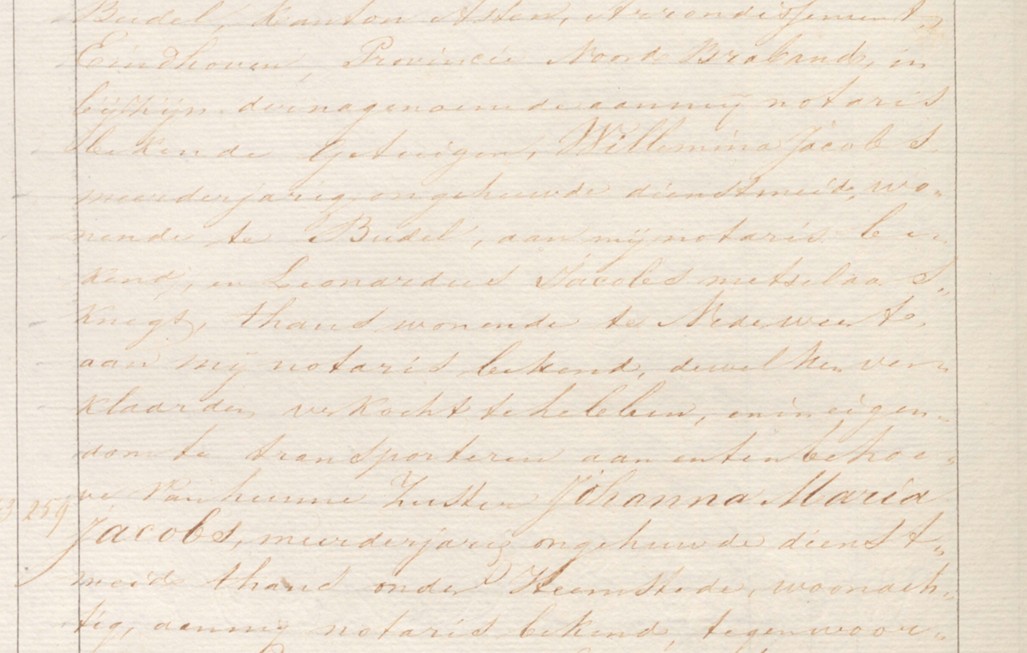 Budel, Kanton Asten, Arrondissement
Eindhoven, Provincie Noord Braband, in
bijzijn der nagenoemde aan mij notaris
bekende getuigen, Willemina Jacobs
meerderjarige ongehuwde dienstmeid, wo„
nende te Budel, aan mij notaris be„
kend, en Leonardus Jacobs metselaars„
knegt, thans wonende te Nederweert
aan mij notaris bekend, dewelken ver„
klaarden verkocht te hebben, en in eigen„
dom te transporteren aan en ten behoe„
ve van hunne Zuster Johanna Maria
259
Jacobs, meerderjarig ongehuwde dienst„
meid thans onder Heemstede, woonach„
tig, aan mij notaris bekend, tegenwoor„